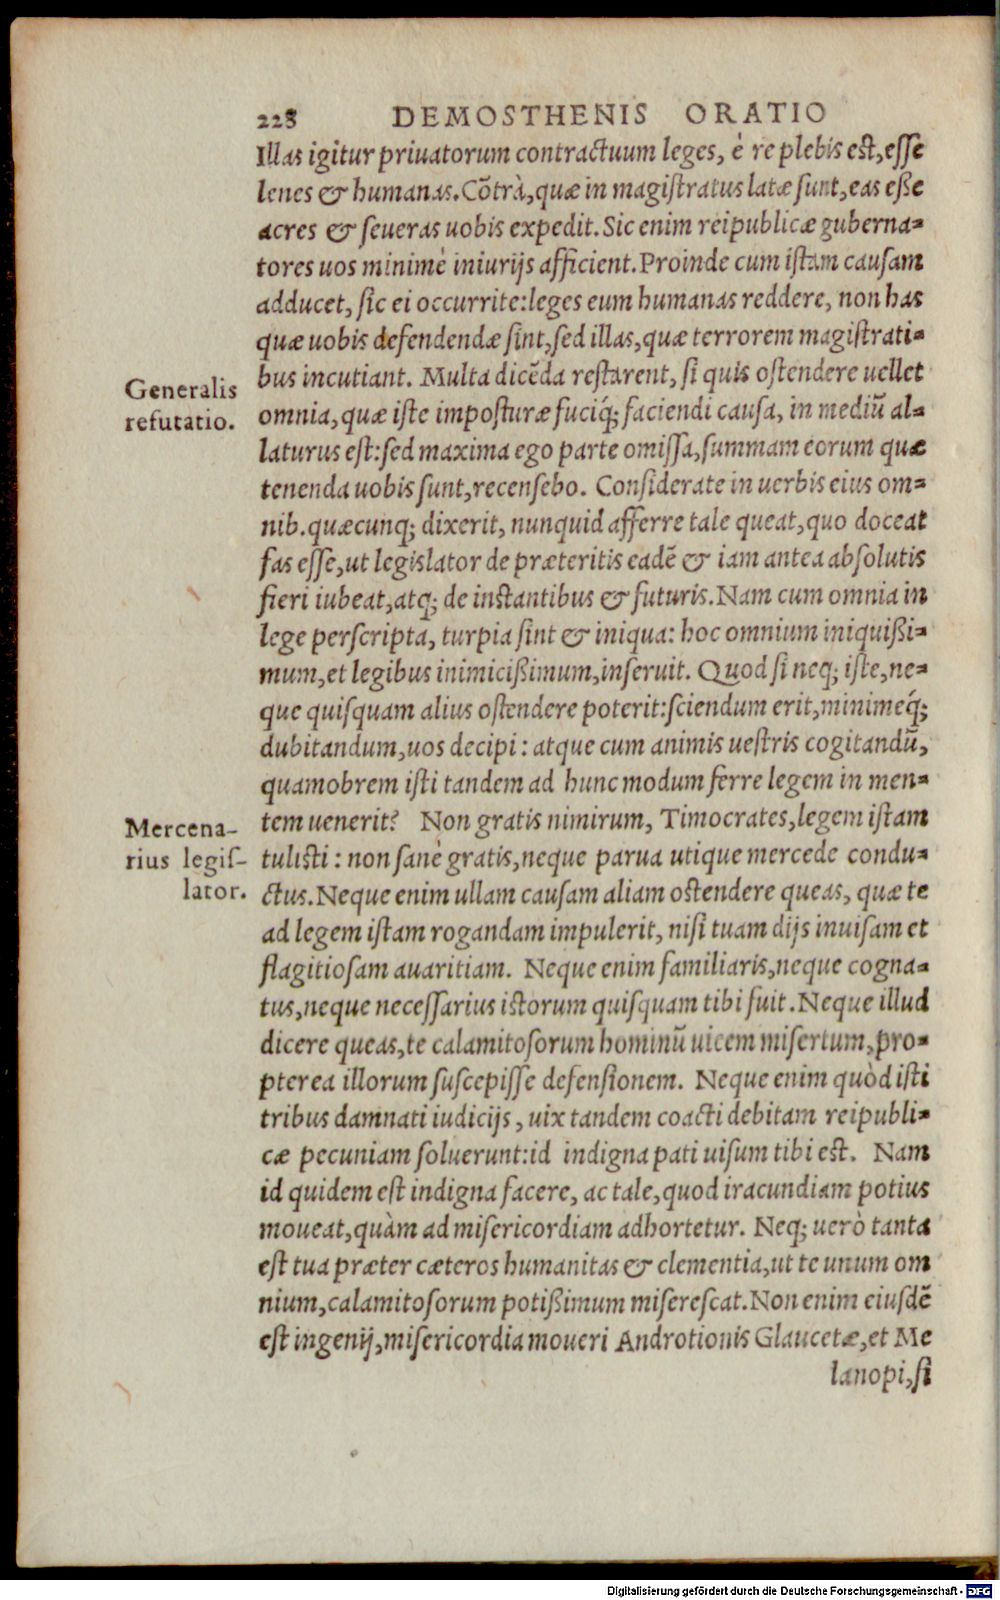 228 DEMOSTHENIS ORATIO
Illas igitur priuatorum contractuum leges, è re plebis est, esse
lenes & humanas. Cōtrà, quæ in magiſtratus latæ ſunt, eas eße
acres & ſeueras uobis expedit. Sic enim reipublicæ guberna-
tores uos minimè iniurijs afficient. Proinde cum iſtam cauſam
adducet, ſic ei occurrite: leges eum humanas reddere, non has
quæ uobis defendendæ ſint, ſed illas, quæ terrorem magiſtrati-
bus incutiant. Multa dicēda reſtarent, ſi quis oſtendere uellet
Generalis
refutatio.
omnia, quæ iſte impoſturæ fuciq́; faciendi cauſa, in mediū al-
laturus eſt: ſed maxima ego parte omiſſa, ſummam eorum quæ
tenenda uobis ſunt, recenſebo. Conſiderate in uerbis eius om-
nib. quæcunq; dixerit, nunquid afferre tale queat, quo doceat
fas eſſe, ut legiſlator de præteritis eadē & iam antea abſolutis
fieri iubeat, atq; de inſtantibus & futuris. Nam cum omnia in
lege perſcripta, turpia ſint & iniqua: hoc omnium iniquißi-
mum, et legibus inimicißimum, inſeruit. Quod ſi neq; iſte, ne-
que quiſquam alius oſtendere poterit: ſciendum erit, minimeq́;
dubitandum, uos decipi: atque cum animis ueſtris cogitandū,
quamobrem iſti tandem ad hunc modum ferre legem in men-
tem uenerit? Non gratis nimirum, Timocrates, legem iſtam
Mercena-
rius legiſ-
lator.
tuliſti: non ſanè gratis, neque parua utique mercede condu-
ctus. Neque enim ullam cauſam aliam oſtendere queas, quæ te
ad legem iſtam rogandam impulerit, niſi tuam dijs inuiſam et
flagitioſam auaritiam. Neque enim familiaris, neque cogna-
tus, neque neceſſarius iſtorum quiſquam tibi fuit. Neque illud
dicere queas, te calamitoſorum hominū uicem miſertum, pro-
pterea illorum ſuſcepiſſe defenſionem. Neque enim quòd iſti
tribus damnati iudicijs, uix tandem coacti debitam reipubli-
cæ pecuniam ſoluerunt: id indigna pati uiſum tibi eſt. Nam
id quidem eſt indigna facere, ac tale, quod iracundiam potius
moueat, quàm ad miſericordiam adhortetur. Neq; uerò tanta
eſt tua præter cæteros humanitas & clementia, ut te unum om
nium, calamitoſorum potißimum miſereſcat. Non enim eiuſdē
eſt ingenij, miſericordia moueri Androtionis Glaucetæ, et Me
lanopi, ſi
Digitalisierung gefördert durch die Deutsche Forschungsgemeinschaft - DFG